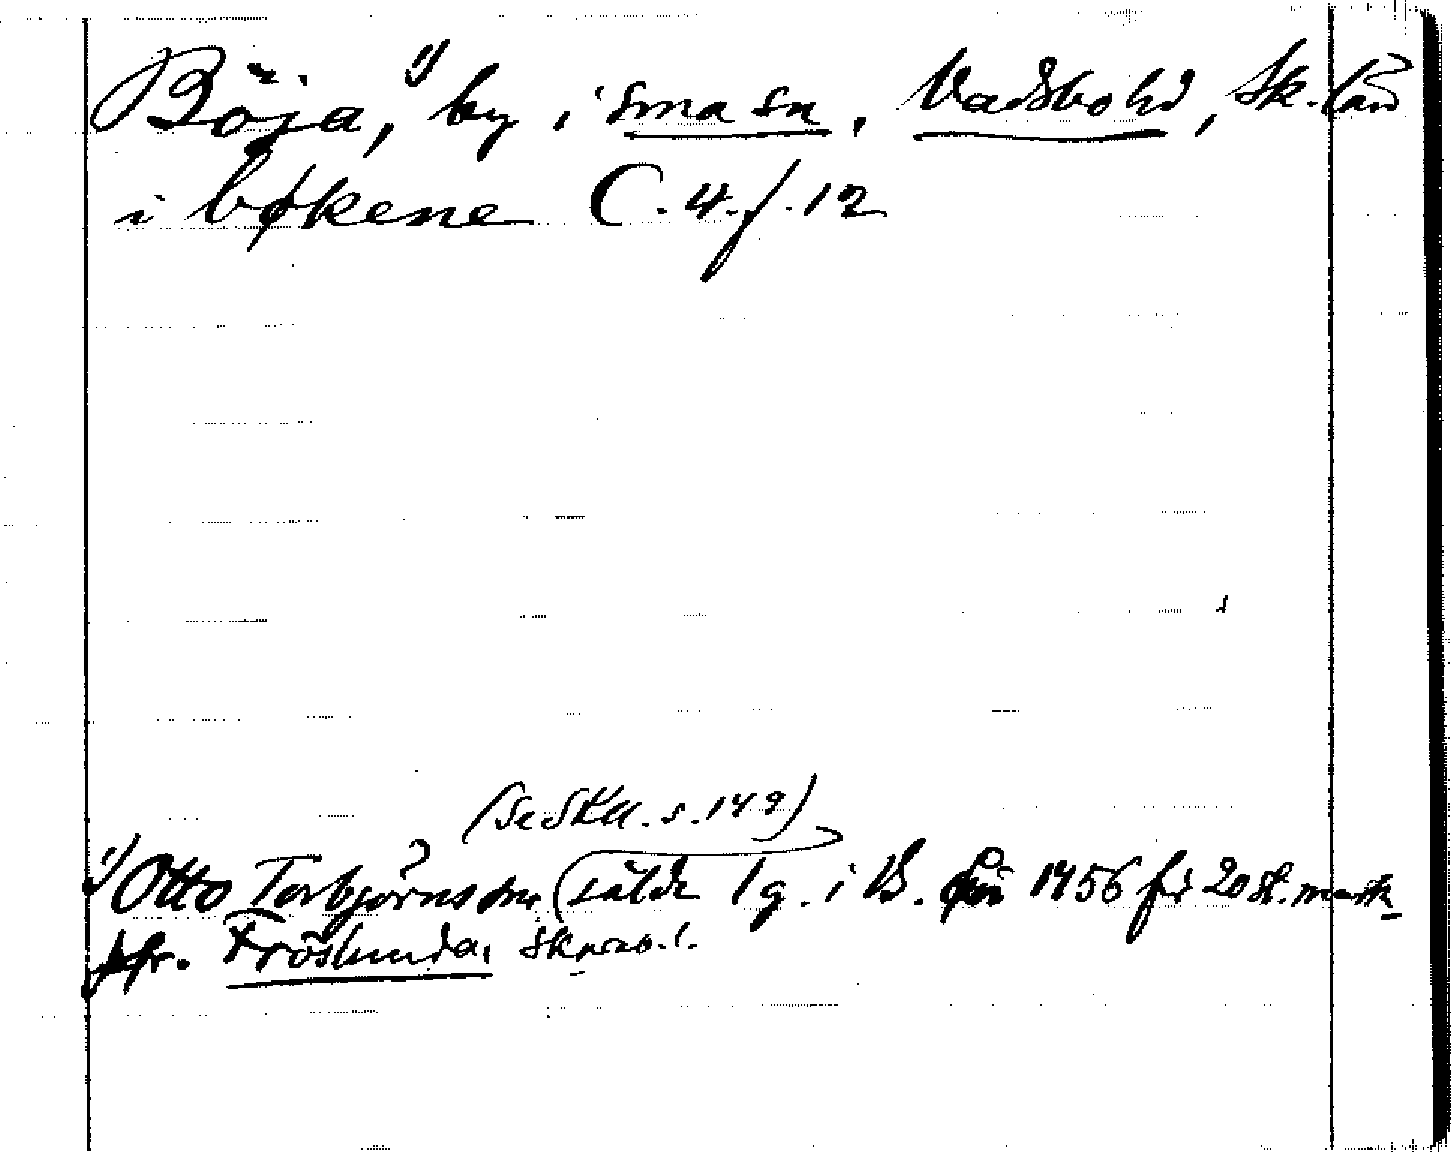 Böja,¹⁾ by i sma sn, Vadsbo hd, Sk. län
i bøkene C. 4. f. 12
(Se SKU. s. 149)
¹⁾ Otto Torbjörnsson sålde 1 g. i B. 1456 för 20 st. mark
jfr. Fröslunda, Skarab. l.